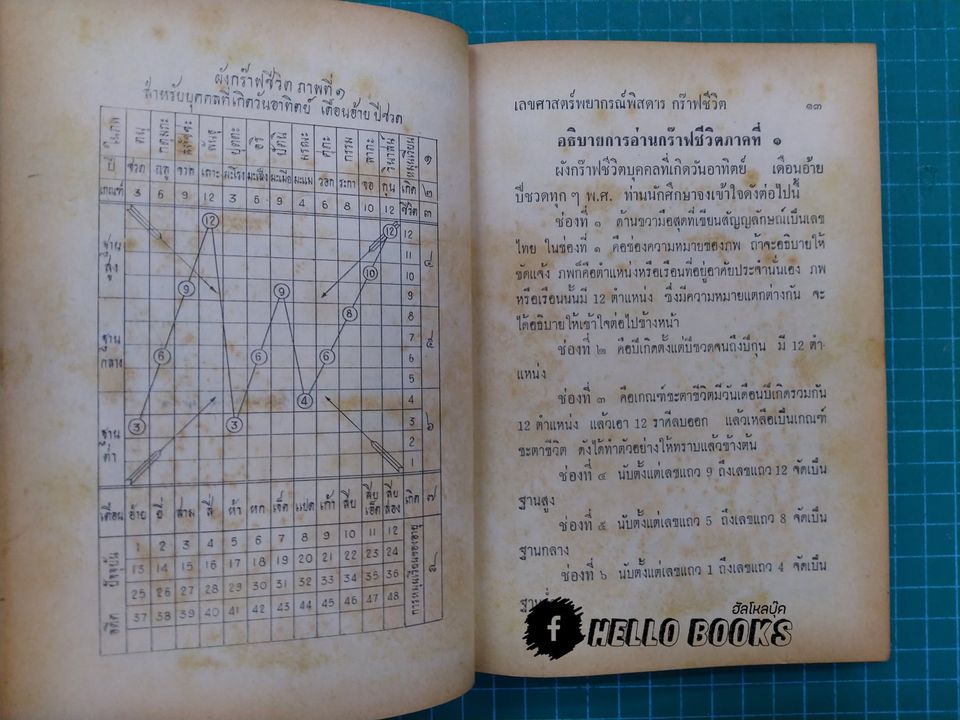 ผังกร๊าฟชีวิต ภาพที่ ๑
สำหรับบุคคลที่เกิดวันอาทิตย์ เดือนอ้าย ปีชวด
ในภพ ตนุ กดุมภะ สหัชชะ พันธุ ปุตตะ อริ ปัตนิ มรณะ ศุภะ กรรม ลาภะ วินาสน์ หมุนเวียน ๑
ปี ชวด ฉลู ขาล เถาะ มะโรง มะเส็ง มะเมีย มะแม วอก ระกา จอ กุน เกิด ๒
เกณฑ์ 3 6 9 12 3 6 9 4 6 8 10 12 ชีวิต ๓
ฐานสูง 12 11 10 9 ๔
ฐานกลาง 8 7 6 5 ๕
ฐานต่ำ 4 3 2 1 ๖
3 6 9 12 3 6 9 4 6 8 10 12
เดือน อ้าย ยี่ สาม สี่ ห้า หก เจ็ด แปด เก้า สิบ สิบเอ็ด สิบสอง เกิด ๗
ปัจจุบัน 1 2 3 4 5 6 7 8 9 10 11 12 การหมุนเวียนของอายุ ๘
13 14 15 16 17 18 19 20 21 22 23 24
25 26 27 28 29 30 31 32 33 34 35 36
อดีต 37 38 39 40 41 42 43 44 45 46 47 48
เลขศาสตร์พยากรณ์พิสดาร กร๊าฟชีวิต ๑๓
อธิบายการอ่านกร๊าฟชีวิตภาคที่ ๑
ผังกร๊าฟชีวิตบุคคลที่เกิดวันอาทิตย์ เดือนอ้าย
ปีชวดทุก ๆ พ.ศ. ท่านนักศึกษาจงเข้าใจดังต่อไปนี้
ช่องที่ ๑ ด้านขวามือสุดที่เขียนสัญญลักษณ์เป็นเลข
ไทย ในช่องที่ ๑ คือช่องความหมายของภพ ถ้าจะอธิบายให้
ชัดแจ้ง ภพก็คือตำแหน่งหรือเรือนที่อยู่อาศัยประจำนั่นเอง ภพ
หรือเรือนนั้นมี 12 ตำแหน่ง ซึ่งมีความหมายแตกต่างกัน จะ
ได้อธิบายให้เข้าใจต่อไปข้างหน้า
ช่องที่ ๒ คือปีเกิดตั้งแต่ปีชวดจนถึงปีกุน มี 12 ตำ-
แหน่ง
ช่องที่ ๓ คือเกณฑ์ชะตาชีวิตมีวันเดือนปีเกิดรวมกัน
12 ตำแหน่ง แล้วเอา 12 ราศีลบออก แล้วเหลือเป็นเกณฑ์
ชะตาชีวิต ดังได้ทำตัวอย่างให้ทราบแล้วข้างต้น
ช่องที่ ๔ นับตั้งแต่เลขแถว 9 ถึงเลขแถว 12 จัดเป็น
ฐานสูง
ช่องที่ ๕ นับตั้งแต่เลขแถว 5 ถึงเลขแถว 8 จัดเป็น
ฐานกลาง
ช่องที่ ๖ นับตั้งแต่เลขแถว 1 ถึงเลขแถว 4 จัดเป็น
ฮัลโหลบุ๊ค
f HELLO BOOKS